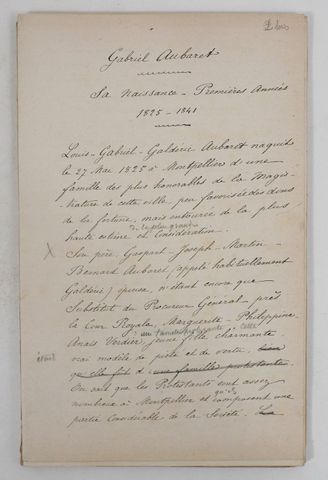 2 bis
Gabriel Aubaret
Sa Naissance - Premières Années
1825 - 1841
Louis-Gabriel-Galdéric Aubaret naquit
le 27 Mai 1825 à Montpellier d'une
famille des plus honorables de la Magis-
trature de cette ville peu favorisée des dons
de la fortune, mais entourée de la plus
haute estime et considération.
Son père, Gaspard-Joseph-Martin-
Bernard Aubaret (appelé habituellement
Galdéric) épousa, n'étant encore que
Substitut du Procureur Général près
la Cour Royale, Marguerite-Philippine
Anaïs Verdier, jeune fille charmante
vrai modèle de piété et de vertu, bien
qu'elle fût d'une famille protestante.
On sait que les Protestants sont assez
nombreux à Montpellier et qu'ils composent une
partie considérable de la Société. La